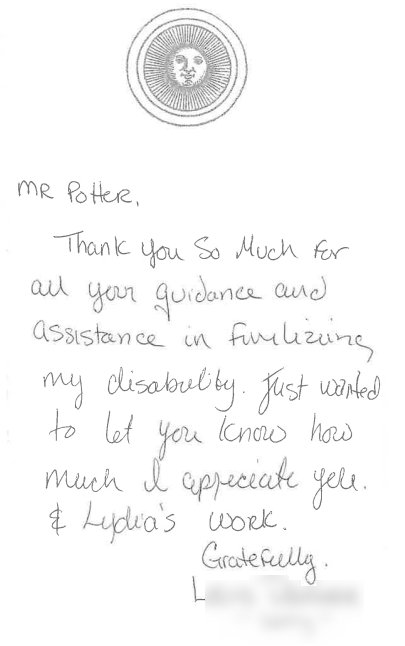 MR Potter,
Thank you so Much for
all your guidance and
assistance in finilizing
my disability. Just wanted
to let you know how
much I appreciate you.
& Lydia's work.
Gratefully.
L